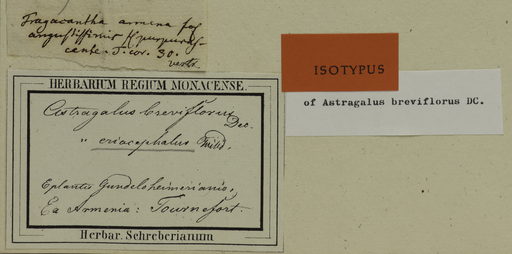 Tragacantha armena fol
angustissimis fl. purpuras-
cente. T. cor. 30.
HERBARIUM REGIUM MONACENSE.
Astragalus breviflorus Dec.
" eriocephalus Willd.
E plantis Gundelsheimerianis,
Ea Armenia: Tournefort.
Herbar. Schreberianum
ISOTYPUS
of Astragalus breviflorus DC.